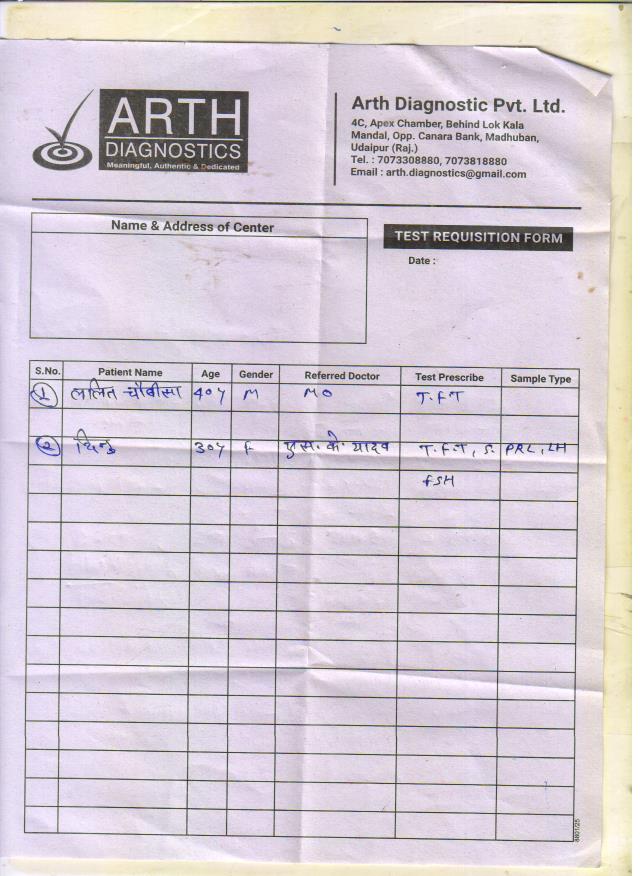 ARTH
DIAGNOSTICS
Meaningful, Authentic & Dedicated
Arth Diagnostic Pvt. Ltd.
4C, Apex Chamber, Behind Lok Kala
Mandal, Opp. Canara Bank, Madhuban,
Udaipur (Raj.)
Tel. : 7073308880, 7073818880
Email : arth.diagnostics@gmail.com
Name & Address of Center
TEST REQUISITION FORM
Date :
S.No. Patient Name Age Gender Referred Doctor Test Prescribe Sample Type
1 ललित चौबीसा 40y M MO T.F.T
2 30y F एस. के. यादव T.F.T, S. PRL, LH
FSH
8801/25